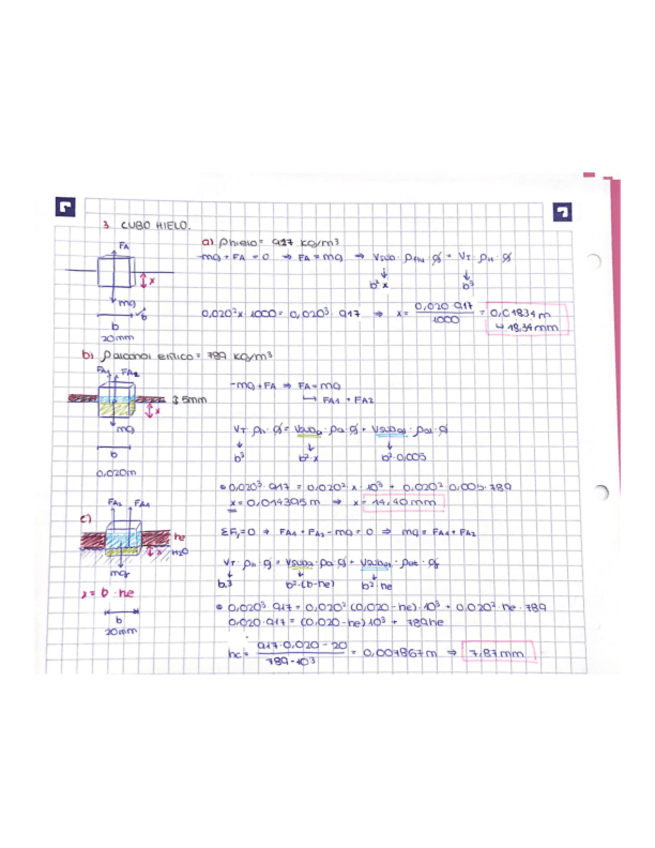 3. CUBO HIELO.
a) ρhielo = 917 kg/m³
FA
-mg + FA = 0 ⇒ FA = mg ⇒ Vsub · ρfu · g = VT · ρH · g
x
b² x b³
mg
b
b
20mm
0,020² x · 1000 = 0,020³ · 917 ⇒ x = 0,020 · 917 / 1000 = 0,01834 m
↳ 18,34 mm
b) ρalcohol etílico = 789 kg/m³
FA1 FA2
-mg + FA ⇒ FA = mg
↳ FA1 + FA2
5mm
x
mg
b
0,020m
VT · ρH · g = Vsub · ρa · g + Vsub · ρal · g
b³ b² · x b² · 0,005
• 0,020³ · 917 = 0,020² · x · 10³ + 0,020² · 0,005 · 789
x = 0,014395 m ⇒ x = 14,40 mm
c)
FA2 FA1
ΣFy = 0 ⇒ FA1 + FA2 - mg = 0 ⇒ mg = FA1 + FA2
he
x H2O
mg
VT · ρH · g = Vsub · ρa · g + Vsub · ρal · g
b³ b² · (b - he) b² · he
x = b - he
b
20mm
• 0,020³ · 917 = 0,020² (0,020 - he) · 10³ + 0,020² · he · 789
0,020 · 917 = (0,020 - he) 10³ + 789he
he = 917 · 0,020 - 20 / 789 - 10³ = 0,007867 m ⇒ 7,87 mm